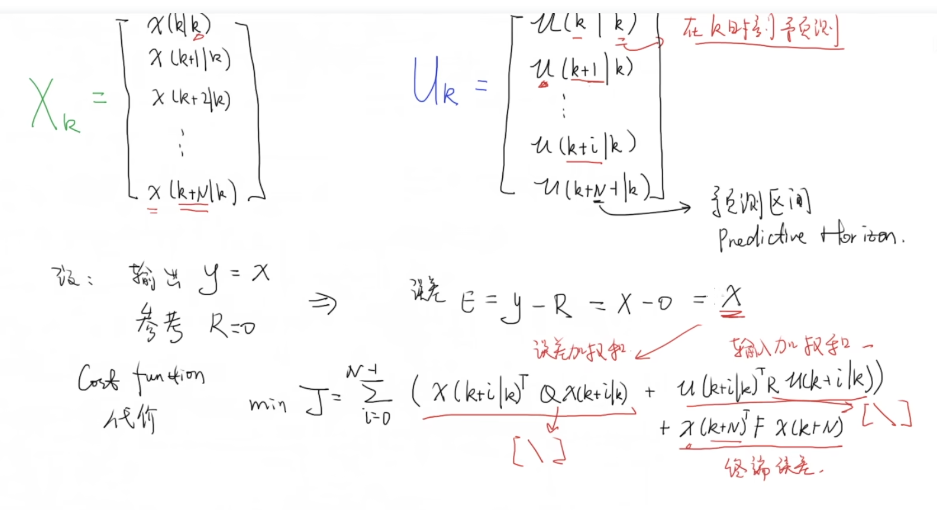 X_k = [ x(k|k) x(k+1|k) x(k+2|k) ⋮ x(k+N|k) ]
U_k = [ u(k|k) u(k+1|k) ⋮ u(k+i|k) u(k+N-1|k) ]
在k时刻预测
预测区间
Predictive Horizon.
设: 输出 y = x
参考 R=0
⇒ 误差 E = y - R = x - 0 = x
误差加权和
输入加权和
Cost function
代价
min J = \sum_{i=0}^{N-1} (x(k+i|k)^T Q x(k+i|k) + u(k+i|k)^T R u(k+i|k))
+ x(k+N)^T F x(k+N)
[\]
[\]
终端误差.